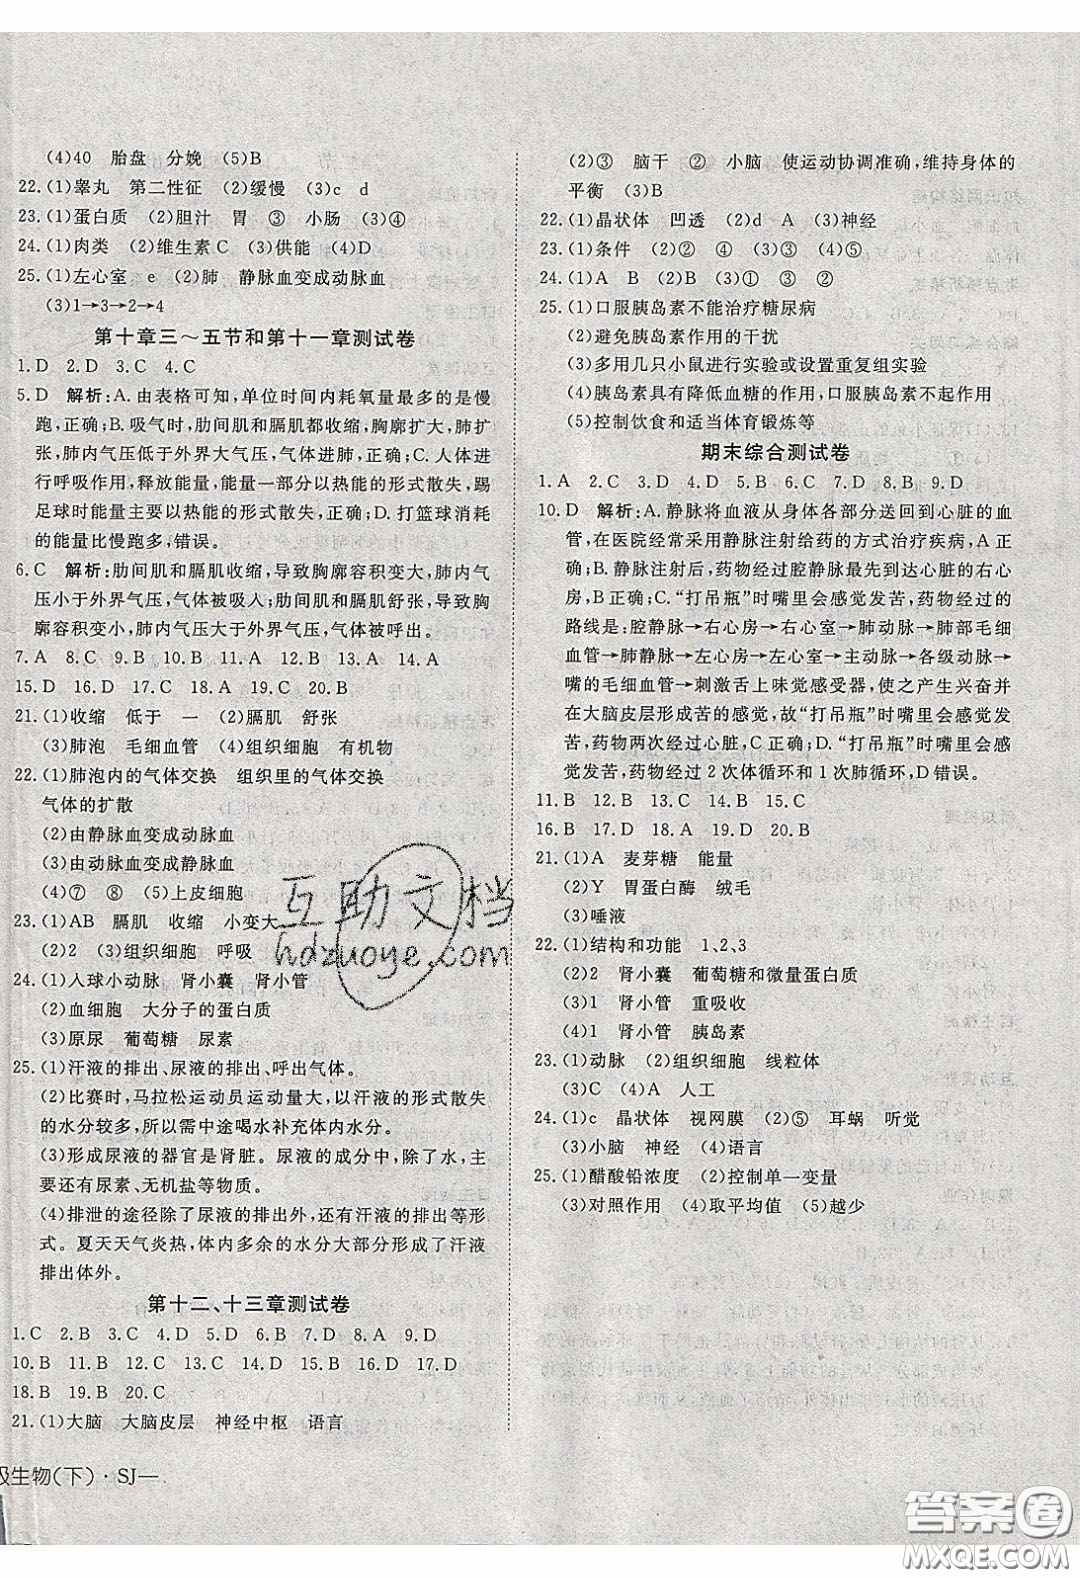 (4)40 胎盘 分娩 (5)B
22.(1)睾丸 第二性征 (2)缓慢 (3)c d
23.(1)蛋白质 (2)胆汁 胃 ③ 小肠 (3)④
24.(1)肉类 (2)维生素C (3)供能 (4)D
25.(1)左心室 e (2)肺 静脉血变成动脉血
(3)1→3→2→4
第十章三～五节和第十一章测试卷
1.D 2.D 3.C 4.C
5.D 解析:A.由表格可知,单位时间内耗氧量最多的是慢
跑,正确;B.吸气时,肋间肌和膈肌都收缩,胸廓扩大,肺扩
张,肺内气压低于外界大气压,正确;C.人体进
行呼吸作用,释放能量,能量一部分以热能的形式散失,踢
足球时能量主要以热能的形式散失,正确;D.打篮球消耗
的能量比慢跑多,错误。
6.C 解析:肋间肌和膈肌收缩,导致胸廓容积变大,肺内气
压小于外界气压,气体被吸入;肋间肌和膈肌舒张,导致胸
廓容积变小,肺内气压大于外界气压,气体被呼出。
7.A 8.C 9.B 10.B 11.A 12.B 13.A 14.A
15.D 16.D 17.C 18.A 19.C 20.B
21.(1)收缩 低于 一 (2)膈肌 舒张
(3)肺泡 毛细血管 (4)组织细胞 有机物
22.(1)肺泡内的气体交换 组织里的气体交换
气体的扩散
(2)由静脉血变成动脉血
(3)由动脉血变成静脉血
(4)⑦ ⑧ (5)上皮细胞
23.(1)AB 膈肌 收缩 小变大
(2)2 (3)组织细胞 呼吸
24.(1)入球小动脉 肾小囊 肾小管
(2)血细胞 大分子的蛋白质
(3)原尿 葡萄糖 尿素
25.(1)汗液的排出、尿液的排出、呼出气体。
(2)比赛时,马拉松运动员运动量大,以汗液的形式散失
的水分较多,所以需中途喝水补充体内水分。
(3)形成尿液的器官是肾脏。尿液的成分中,除了水,主
要还有尿素、无机盐等物质。
(4)排泄的途径除了尿液的排出外,还有汗液的排出等形
式。夏天天气炎热,体内多余的水分大部分形成了汗液
排出体外。
第十二、十三章测试卷
1.C 2.B 3.C 4.D 5.D 6.B 7.D 8.A 9.D
10.B 11.B 12.C 13.C 14.D 15.D 16.D 17.D
18.B 19.B 20.C
21.(1)大脑 大脑皮层 神经中枢 语言
级生物(下)·SJ—
(2)③ 脑干 ② 小脑 使运动协调准确,维持身体的
平衡 (3)B
22.(1)晶状体 凹透 (2)d A (3)神经
23.(1)条件 (2)② ④ (3)② (4)⑤
24.(1)A B (2)C (3)A (4)B
25.(1)口服胰岛素不能治疗糖尿病
(2)避免胰岛素作用的干扰
(3)多用几只小鼠进行实验或设置重复组实验
(4)胰岛素具有降低血糖的作用,口服胰岛素不起作用
(5)控制饮食和适当体育锻炼等
期末综合测试卷
1.A 2.C 3.D 4.D 5.B 6.C 7.D 8.B 9.D
10.D 解析:A.静脉将血液从身体各部分送回到心脏的血
管,在医院经常采用静脉注射给药的方式治疗疾病,A正
确;B.静脉注射后,药物经过腔静脉最先到达心脏的右心
房,B正确;C.“打吊瓶”时嘴里会感觉发苦,药物经过的
路线是:腔静脉→右心房→右心室→肺动脉→肺部毛细
血管→肺静脉→左心房→左心室→主动脉→各级动脉→
嘴的毛细血管→刺激舌上味觉感受器,使之产生兴奋并
在大脑皮层形成苦的感觉,故“打吊瓶”时嘴里会感觉发
苦,药物两次经过心脏,C正确;D.“打吊瓶”时嘴里会感
觉发苦,药物经过2次体循环和1次肺循环,D错误。
11.B 12.B 13.C 14.B 15.C
16.B 17.D 18.A 19.D 20.B
21.(1)A 麦芽糖 能量
(2)Y 胃蛋白酶 绒毛
(3)唾液
22.(1)结构和功能 1、2、3
(2)2 肾小囊 葡萄糖和微量蛋白质
(3)1 肾小管 重吸收
(4)1 肾小管 胰岛素
23.(1)动脉 (2)组织细胞 线粒体
(3)C (4)A 人工
24.(1)c 晶状体 视网膜 (2)⑤ 耳蜗 听觉
(3)小脑 神经 (4)语言
25.(1)醋酸铅浓度 (2)控制单一变量
(3)对照作用 (4)取平均值 (5)越少
互助文档
hdzuoye.com
答案圈
MXQE.COM